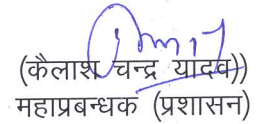 (कैलाश चन्द्र यादव))
महाप्रबन्धक (प्रशासन)